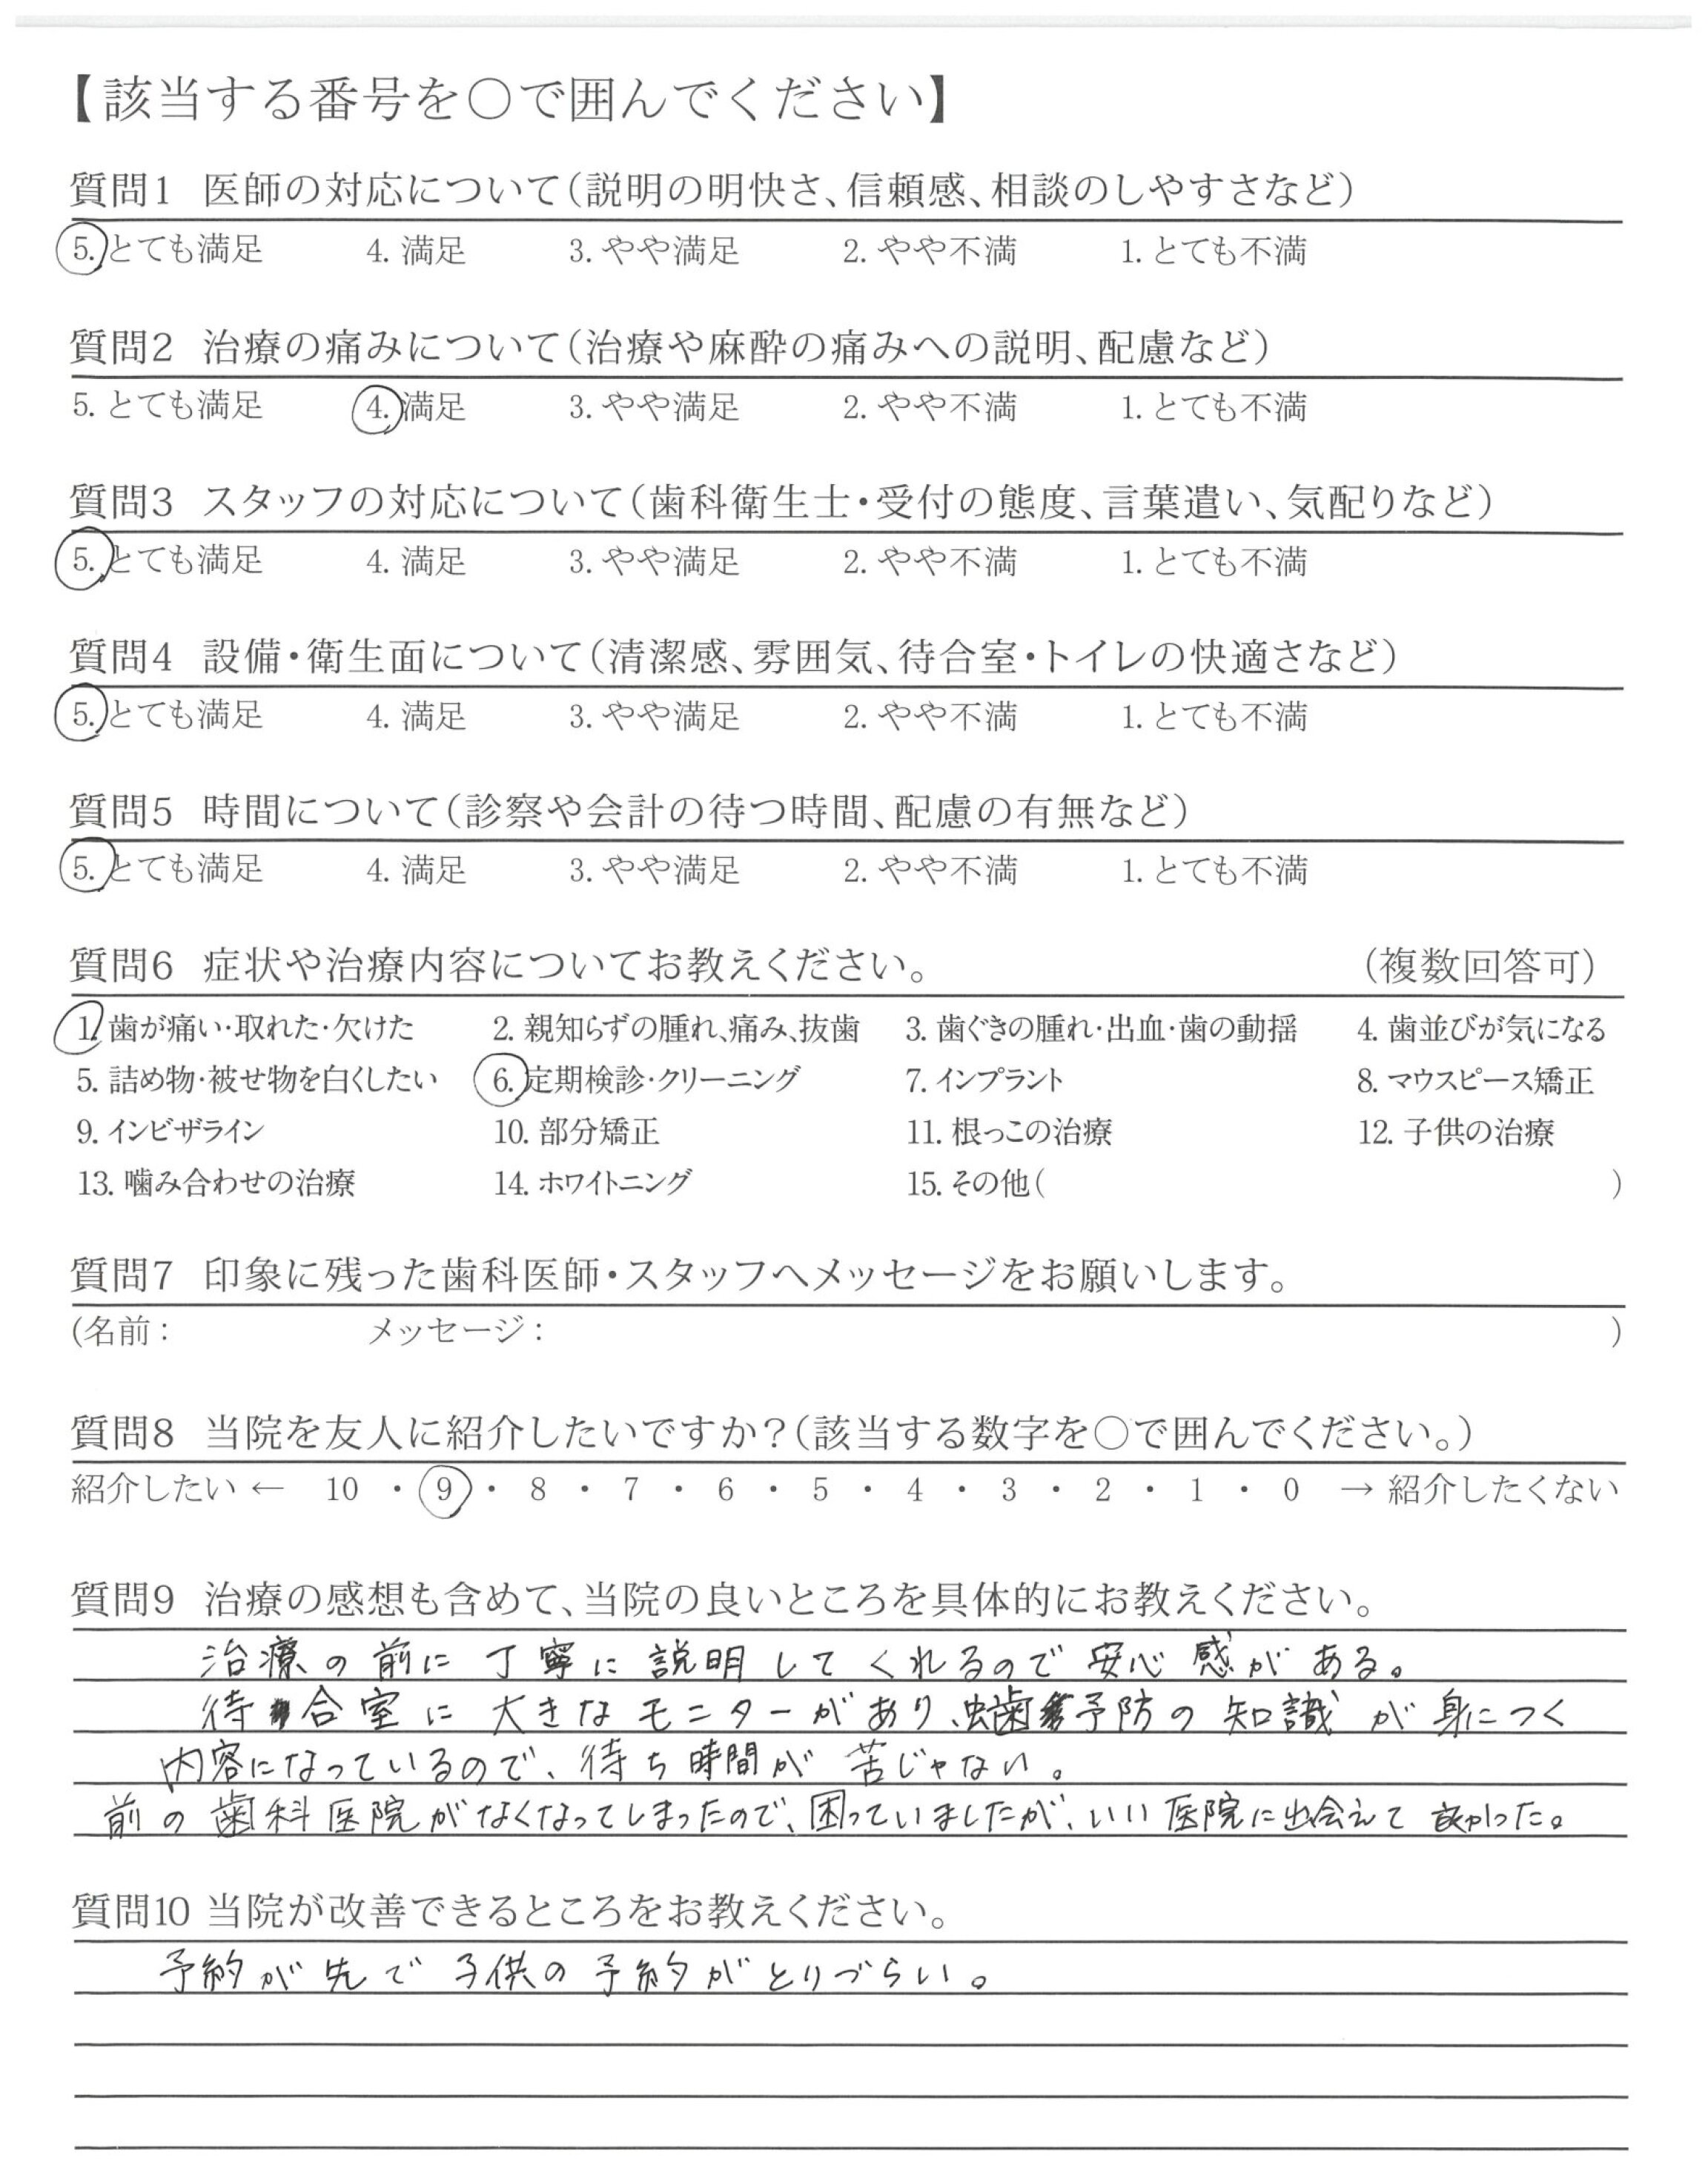 【該当する番号を○で囲んでください】
質問1 医師の対応について(説明の明快さ、信頼感、相談のしやすさなど)
5. とても満足 4. 満足 3. やや満足 2. やや不満 1. とても不満
質問2 治療の痛みについて(治療や麻酔の痛みへの説明、配慮など)
5. とても満足 4. 満足 3. やや満足 2. やや不満 1. とても不満
質問3 スタッフの対応について(歯科衛生士・受付の態度、言葉遣い、気配りなど)
5. とても満足 4. 満足 3. やや満足 2. やや不満 1. とても不満
質問4 設備・衛生面について(清潔感、雰囲気、待合室・トイレの快適さなど)
5. とても満足 4. 満足 3. やや満足 2. やや不満 1. とても不満
質問5 時間について(診察や会計の待つ時間、配慮の有無など)
5. とても満足 4. 満足 3. やや満足 2. やや不満 1. とても不満
質問6 症状や治療内容についてお教えください。 (複数回答可)
1. 歯が痛い・取れた・欠けた 2. 親知らずの腫れ、痛み、抜歯 3. 歯ぐきの腫れ・出血・歯の動揺 4. 歯並びが気になる
5. 詰め物・被せ物を白くしたい 6. 定期検診・クリーニング 7. インプラント 8. マウスピース矯正
9. インビザライン 10. 部分矯正 11. 根っこの治療 12. 子供の治療
13. 噛み合わせの治療 14. ホワイトニング 15. その他( )
質問7 印象に残った歯科医師・スタッフへメッセージをお願いします。
(名前: メッセージ: )
質問8 当院を友人に紹介したいですか?(該当する数字を○で囲んでください。)
紹介したい ← 10 ・ 9 ・ 8 ・ 7 ・ 6 ・ 5 ・ 4 ・ 3 ・ 2 ・ 1 ・ 0 → 紹介したくない
質問9 治療の感想も含めて、当院の良いところを具体的にお教えください。
治療の前に丁寧に説明してくれるので安心感がある。
待合室に大きなモニターがあり、虫歯予防の知識が身につく
内容になっているので、待ち時間が苦じゃない。
前の歯科医院がなくなってしまったので、困っていましたが、いい医院に出会えて良かった。
質問10 当院が改善できるところをお教えください。
予約が先で子供の予約がとりづらい。